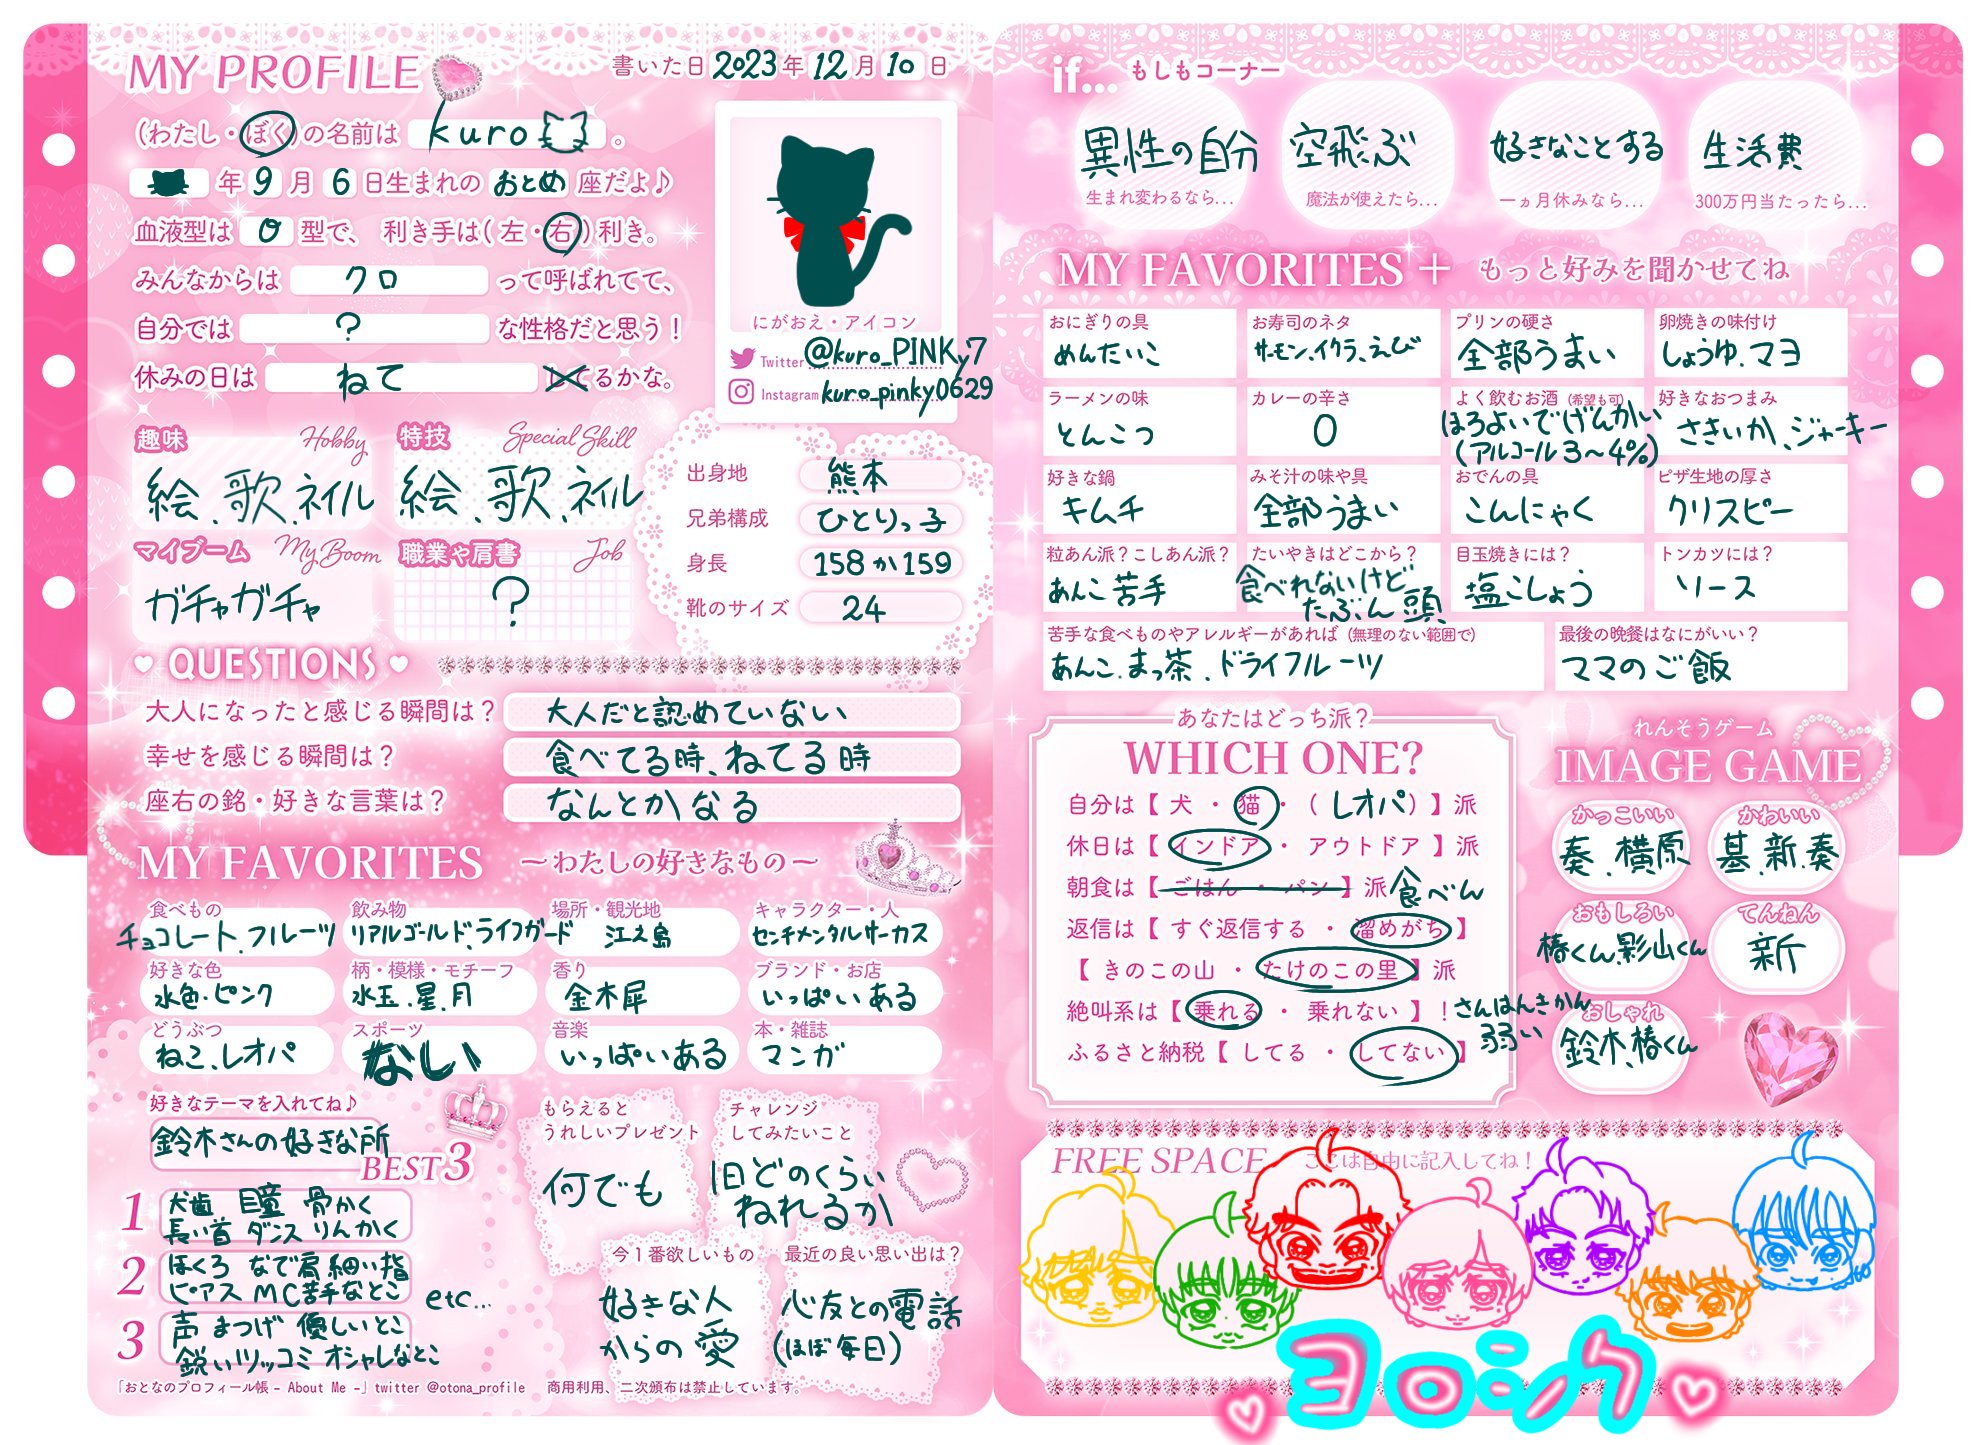 MY PROFILE
書いた日 2023 年 12 月 10 日
(わたし・ぼく)の名前は kuro 。
年 9 月 6 日生まれの おとめ 座だよ♪
血液型は O 型で、 利き手は(左・右)利き。
みんなからは クロ って呼ばれてて、
自分では ? な性格だと思う!
休みの日は ねて してるかな。
にがおえ・アイコン
Twitter @kuro_PINKy7
Instagram kuro_pinky0629
趣味 Hobby
絵、歌、ネイル
特技 Special Skill
絵、歌、ネイル
マイブーム My Boom
ガチャガチャ
職業や肩書 Job
?
出身地 熊本
兄弟構成 ひとりっ子
身長 158か159
靴のサイズ 24
QUESTIONS
大人になったと感じる瞬間は? 大人だと認めていない
幸せを感じる瞬間は? 食べてる時、ねてる時
座右の銘・好きな言葉は? なんとかなる
MY FAVORITES ～わたしの好きなもの～
食べもの 飲み物 場所・観光地 キャラクター・人
チョコレート、フルーツ リアルゴールド、ライフガード 江之島 センチメンタルサーカス
好きな色 柄・模様・モチーフ 香り ブランド・お店
水色・ピンク 水玉、星、月 金木犀 いっぱいある
どうぶつ スポーツ 音楽 本・雑誌
ねこ、レオパ なし いっぱいある マンガ
好きなテーマを入れてね♪
鈴木さんの好きな所
BEST3
1 犬歯 瞳 骨かく
長い首 ダンス りんかく
2 ほくろ なで肩 細い指
ピアス MC苦手なとこ
etc...
3 声 まつげ 優しいとこ
鋭いツッコミ オシャレなとこ
もらえると
うれしいプレゼント
何でも
チャレンジ
してみたいこと
1日どのくらい
ねれるか
今1番欲しいもの
好きな人
からの愛
最近の良い思い出は?
心友との電話
(ほぼ毎日)
「おとなのプロフィール帳 - About Me -」twitter @otona_profile 商用利用、二次頒布は禁止しています。
if... もしもコーナー
異性の自分 空飛ぶ 好きなことする 生活費
生まれ変わるなら... 魔法が使えたら... 一ヵ月休みなら... 300万円当たったら...
MY FAVORITES + もっと好みを聞かせてね
おにぎりの具 お寿司のネタ プリンの硬さ 卵焼きの味付け
めんたいこ サーモン、イクラ、えび 全部うまい しょうゆ、マヨ
ラーメンの味 カレーの辛さ よく飲むお酒(希望も可) 好きなおつまみ
とんこつ 0 ほろよいでげんかい さきいか、ジャーキー
(アルコール3〜4%)
好きな鍋 みそ汁の味や具 おでんの具 ピザ生地の厚さ
キムチ 全部うまい こんにゃく クリスピー
粒あん派?こしあん派? たいやきはどこから? 目玉焼きには? トンカツには?
あんこ苦手 食べれないけど 塩こしょう ソース
たぶん頭
苦手な食べものやアレルギーがあれば(無理のない範囲で) 最後の晩餐はなにがいい?
あんこ、まっ茶、ドライフルーツ ママのご飯
あなたはどっち派?
WHICH ONE?
自分は【 犬 ・ 猫 ・ ( レオパ ) 】派
休日は【 インドア ・ アウトドア 】派
朝食は【 ごはん ・ パン 】派 食べん
返信は【 すぐ返信する ・ 溜めがち 】
【 きのこの山 ・ たけのこの里 】派
絶叫系は【 乗れる ・ 乗れない 】! さんはんきかん
弱い
ふるさと納税【 してる ・ してない 】
れんそうゲーム
IMAGE GAME
かっこいい かわいい
奏、横原 基、新、奏
おもしろい てんねん
椿くん、影山くん 新
おしゃれ
鈴木、椿くん
FREE SPACE ここは自由に記入してね!
ヨロシク